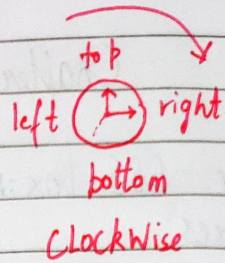 top
left right
bottom
CLOCKWISE